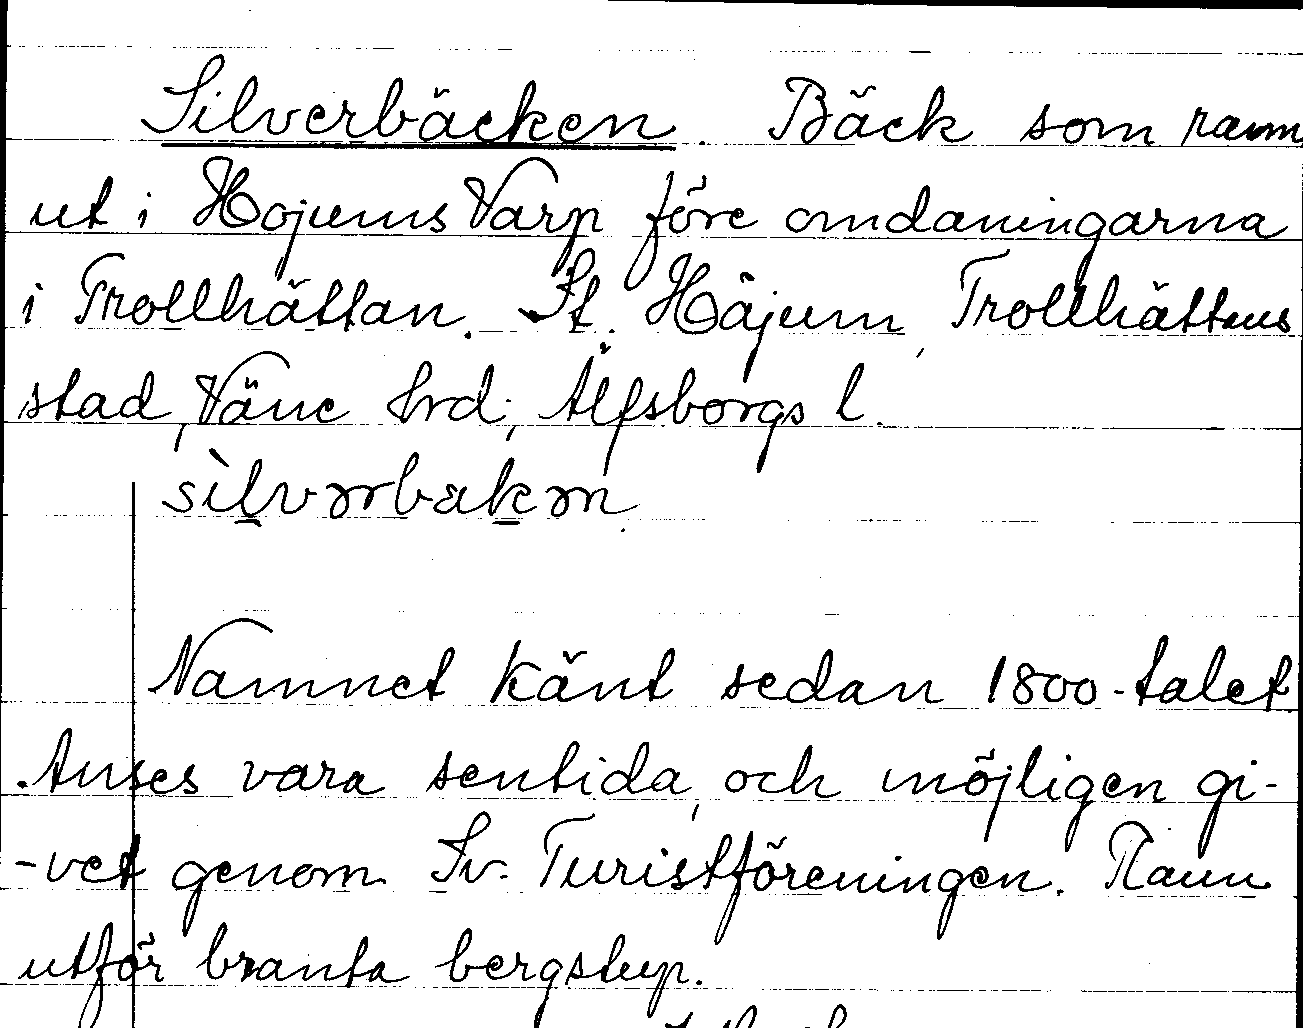 Silverbäcken. Bäck som rann
ut i Hojums Varp före omdaningarna
i Trollhättan. St. Häjum, Trollhättans
stad, Väne hrd, Älfsborgs l.
Namnet känt sedan 1800-talet.
Anses vara sentida, och möjligen gi-
-vet genom Sv. Turistföreningen. Rann
utför branta bergstup.